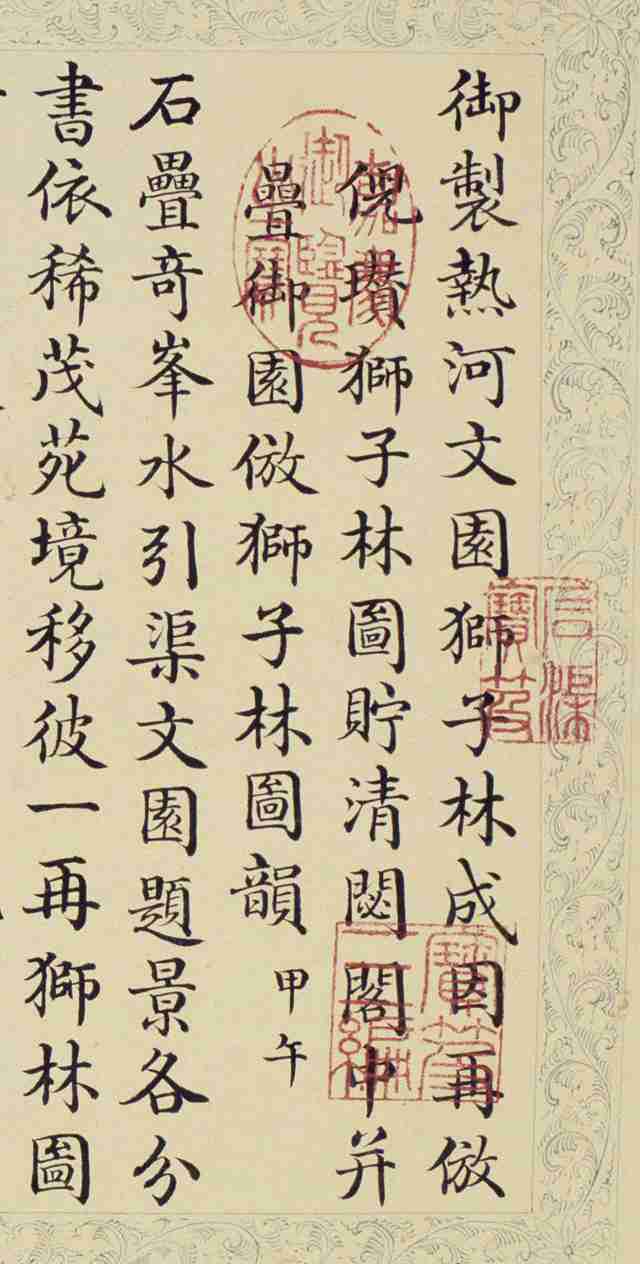 御製熱河文園獅子林成因再倣
倪瓚獅子林圖貯清閟閣中并
疊御園倣獅子林圖韻 甲午
石疊奇峯水引渠文園題景各分
書依稀茂苑境移彼一再獅林圖
嘉慶御覽之寶
石渠寶笈
寶笈三編